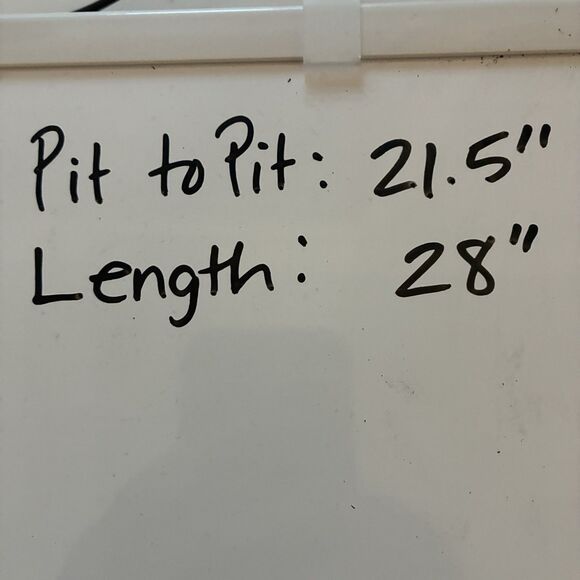 Pit to Pit: 21.5"
Length: 28"